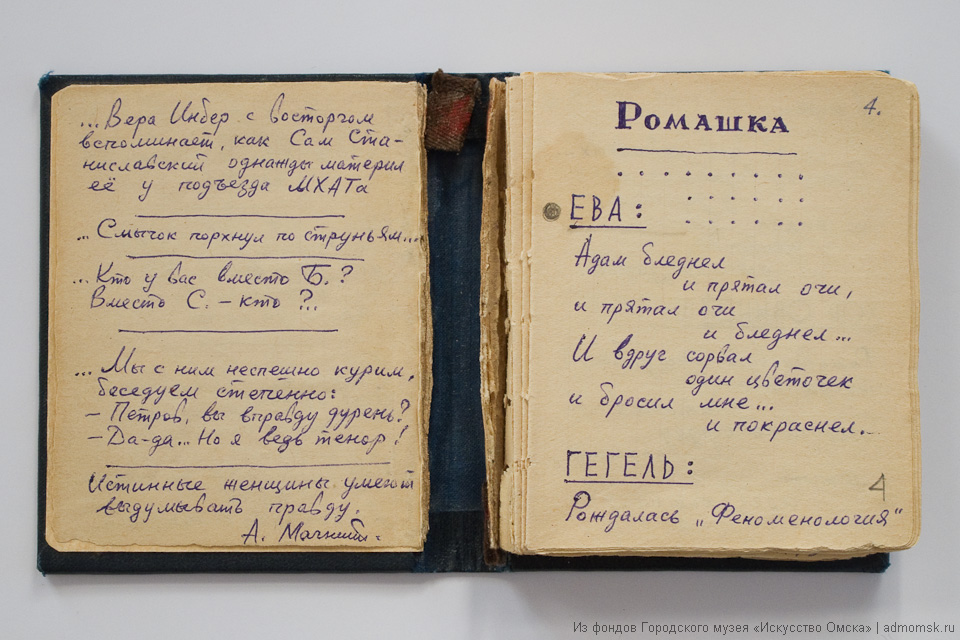 ...Вера Инбер с восторгом
вспоминает, как Сам Ста-
ниславский однажды материл
её у подъезда МХАТа
...Смычок порхнул по струньям...
...Кто у вас вместо Б.?
Вместо С. – кто?..
...Мы с ним неспешно курим,
беседуем степенно:
– Петров, вы вправду дурень?
– Да-да... Но я ведь тенор!
Истинные женщины умеют
выдумывать правду.
А.
4.
РОМАШКА
ЕВА:
Адам бледнел
и прятал очи,
и прятал очи
и бледнел...
И вдруг сорвал
один цветочек
и бросил мне...
и покраснел...
ГЕГЕЛЬ:
4
Рождалась „Феноменология“
Из фондов Городского музея «Искусство Омска» | admomsk.ru